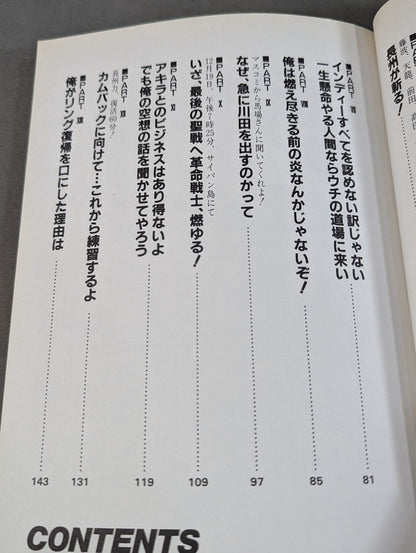 藤波、天龍、前田
長州が斬る!
■PART Ⅶ
インディーすべてを認めない訳じゃない
一生懸命やる人間ならウチの道場に来い
81
■PART Ⅷ
俺は燃え尽きる前の炎なんかじゃないぞ!
85
■PART Ⅸ
マスコミから馬場さんに聞いてくれよ!
なぜ、急に川田を出すのかって
97
■PART Ⅹ
12月19日、午後7時25分、サイパン島にて
いざ、最後の聖戦へ革命戦士、燃ゆる!
109
■PART Ⅺ
アキラとのビジネスはあり得ないよ
でも俺の空想の話を聞かせてやろう
119
■PART Ⅻ
長州力、復活60分!
カムバックに向けて…これから練習するよ
131
■PART XIII
俺がリング復帰を口にした理由は
143
CONTENTS